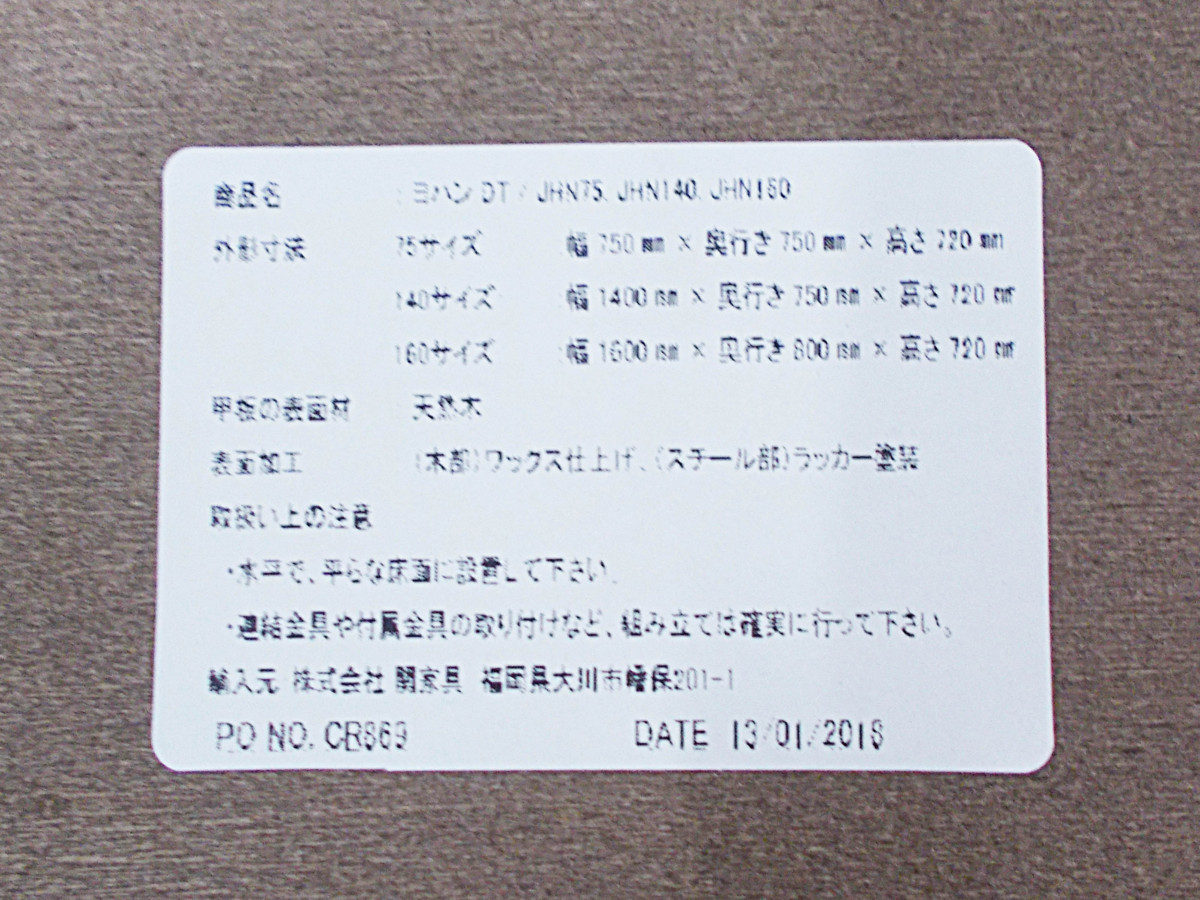 商品名 : ヨハン DT / JHN75, JHN140, JHN160
外形寸法 75サイズ :幅 750 mm × 奥行き 750 mm × 高さ 720 mm
140サイズ :幅 1400 mm × 奥行き 750 mm × 高さ 720 mm
160サイズ :幅 1600 mm × 奥行き 800 mm × 高さ 720 mm
甲板の表面材 天然木
表面加工 (木部)ワックス仕上げ、(スチール部)ラッカー塗装
取扱い上の注意
・水平で、平らな床面に設置して下さい。
・連結金具や付属金具の取り付けなど、組み立ては確実に行って下さい。
輸入元 株式会社 関家具 福岡県大川市幡保201-1
PO NO. CR869
DATE 13/01/2018